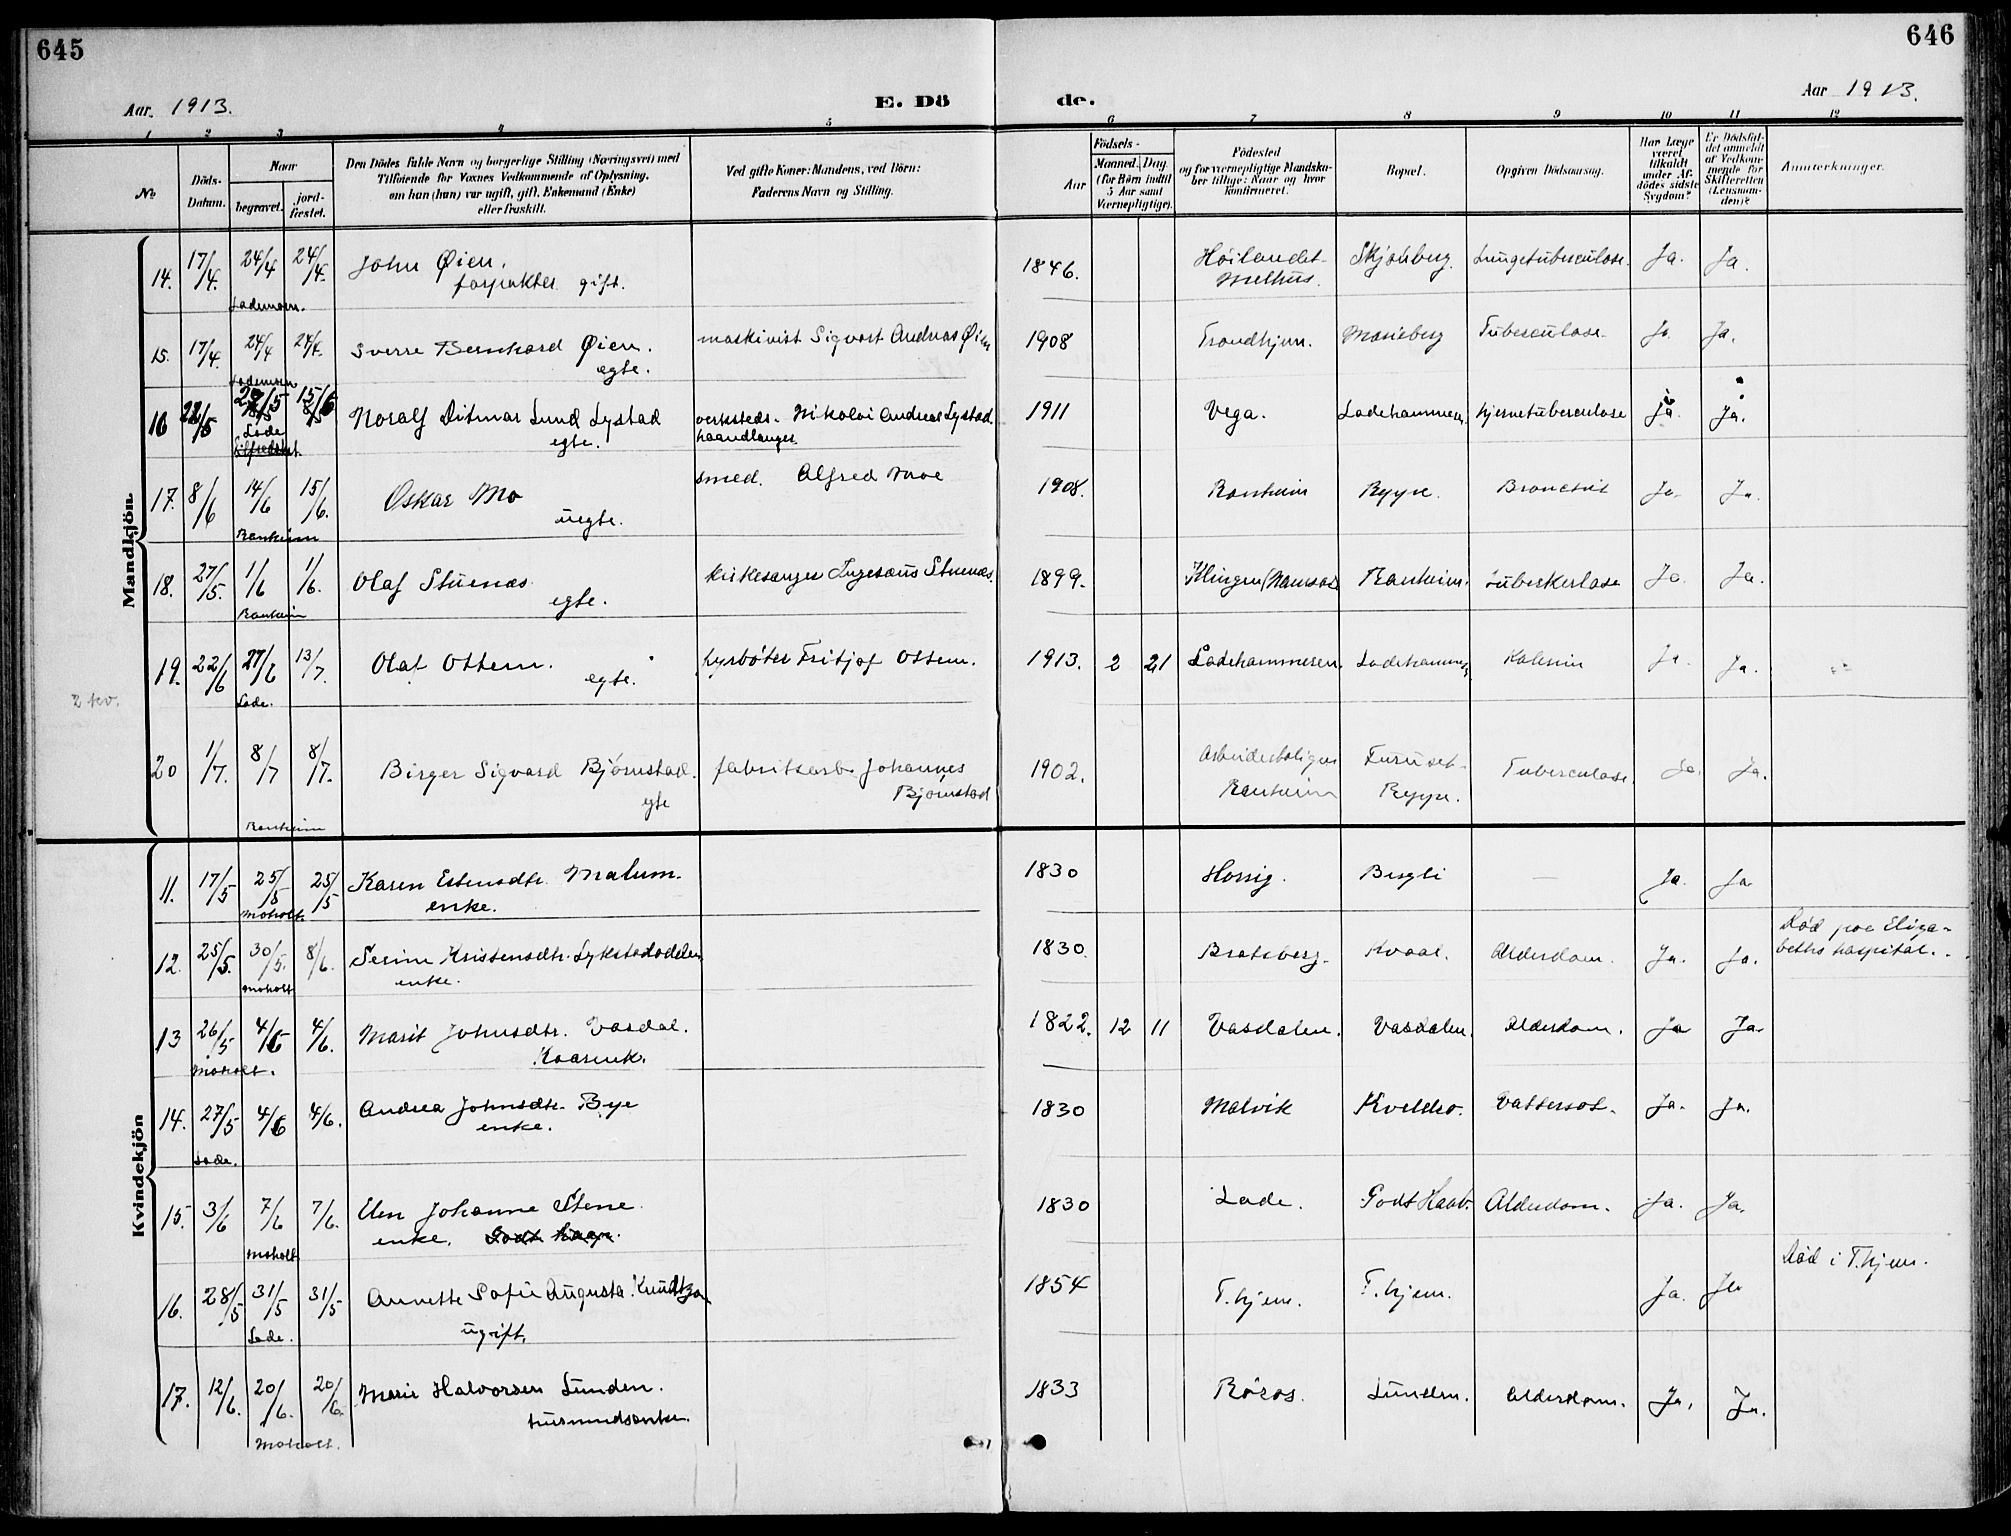 645
646
Aar. 1913.
E. Dö
de.
Aar 1913.
1 2 3 4 5 6 7 8 9 10 11 12
No
Döds-
Datum.
Naar
begravet.
jord-
fæstet.
Den Dödes fulde Navn og borgerlige Stilling (Næringsvei) med
Tilföiende for Voxnes Vedkommende af Oplysning,
om han (hun) var ugift, gift, Enkemand (Enke)
eller fraskilt.
Ved gifte Koner: Mandens, ved Börn:
Faderens Navn og Stilling.
Födsels-
Aar
Maaned.
Dag.
(for Börn indtil
5 Aar samt
Værnepligtige).
Födested
og for værnepligtige Mandska-
ber tillige: Naar og hvor
konfirmeret.
Bopæl.
Opgiven Dödsaarsag.
Har Læge
været
tilkaldt
under Af-
dödes sidste
Sygdom?
Er Dödsfal-
det anmeldt
af Vedkom-
mende for
Skifteretten
(Lensman-
den)?
Anmærkninger.
Mandkjön
14. 17/4. 24/4 24/4. John Øien. 1846. Høilandet Skjønberg. Lungetuberculose. Ja. Ja.
Lademoen. gift. Melhus.
15. 17/4. 24/4 24/4. Sverre Bernhard Øien. maskinist Sigvart Andreas Øien 1908 Trondhjem. Marieberg Tuberculose. Ja. Ja.
Lademoen egte.
16 22/5 Noralf Ditmar Lund Lystad verksteds- Nikolai Andreas Lystad. 1911 Vega. Ladehammeren. hjernetuberculose Ja. Ja.
Lade egte. haandlanger.
17. 8/6 14/6 15/6. Oskar Mo smed. Alfred Moe 1908. Ranheim Reppe. Bronchit Ja. Ja.
Ranheim uegte.
18. 27/5. 1/6 1/6. Olaf Stuenæs kirkesanger Stuenæs. 1899. Klingen (Namsos Ranheim. tuberkulose Ja. Ja.
Ranheim egte.
2 kv.
19. 22/6 27/6 13/7. Olaf Ottem. fyrbøter Fritjof Ottem. 1913. 2 21 Ladehammeren Ladehammeren Kolerin Ja. Ja.
Lade. egte.
20 1/7. 8/7 8/7. Birger Sigvard Bjørnstad. fabriksarb. Johannes 1902. Arbeiderboligen Furuset Tuberculose. Ja. Ja.
egte Bjørnstad Ranheim Reppe.
Ranheim
Kvindekjön
11. 17/5 25/5 25/5 Karen Estensdtr. Malum. 1830 Bergli — Ja. Ja
Moholt. enke.
12. 25/5. 30/5. 8/6. Serine Kristensdtr. 1830. Bratsberg. Kvaal. Alderdom. Ja. Ja. Død paa Eliza-
Moholt enke. beths hospital.
13 26/5 4/6 4/6. Marit Johnsdtr. Vasdal. 1822. 12 11 Vasdalen. Vasdalen. Alderdom. Ja Ja.
Moholt. Kaarenk.
14. 27/5 4/6 4/6. Andrea Johnsdtr. Bye 1830 Malvik Kveldro. Vattersot. Ja. Ja.
Lade. enke.
15. 3/6 7/6 7/6. Elen Johanne Stene. 1830 Lade. Godt Haab. Alderdom. Ja. Ja.
Moholt enke. Godt haap.
16. 28/5 31/5 31/5 Annette Sofie Augusta Knudtzon 1854 T.hjem. T.hjem. Ja. Ja Død i T.hjem.
Lade. ugift.
17. 12/6. 20/6. 20/6. Marie Halvorsen Lunden. 1833 Røros. Lunden. Alderdom. Ja. Ja.
Moholt. husmandsenke.